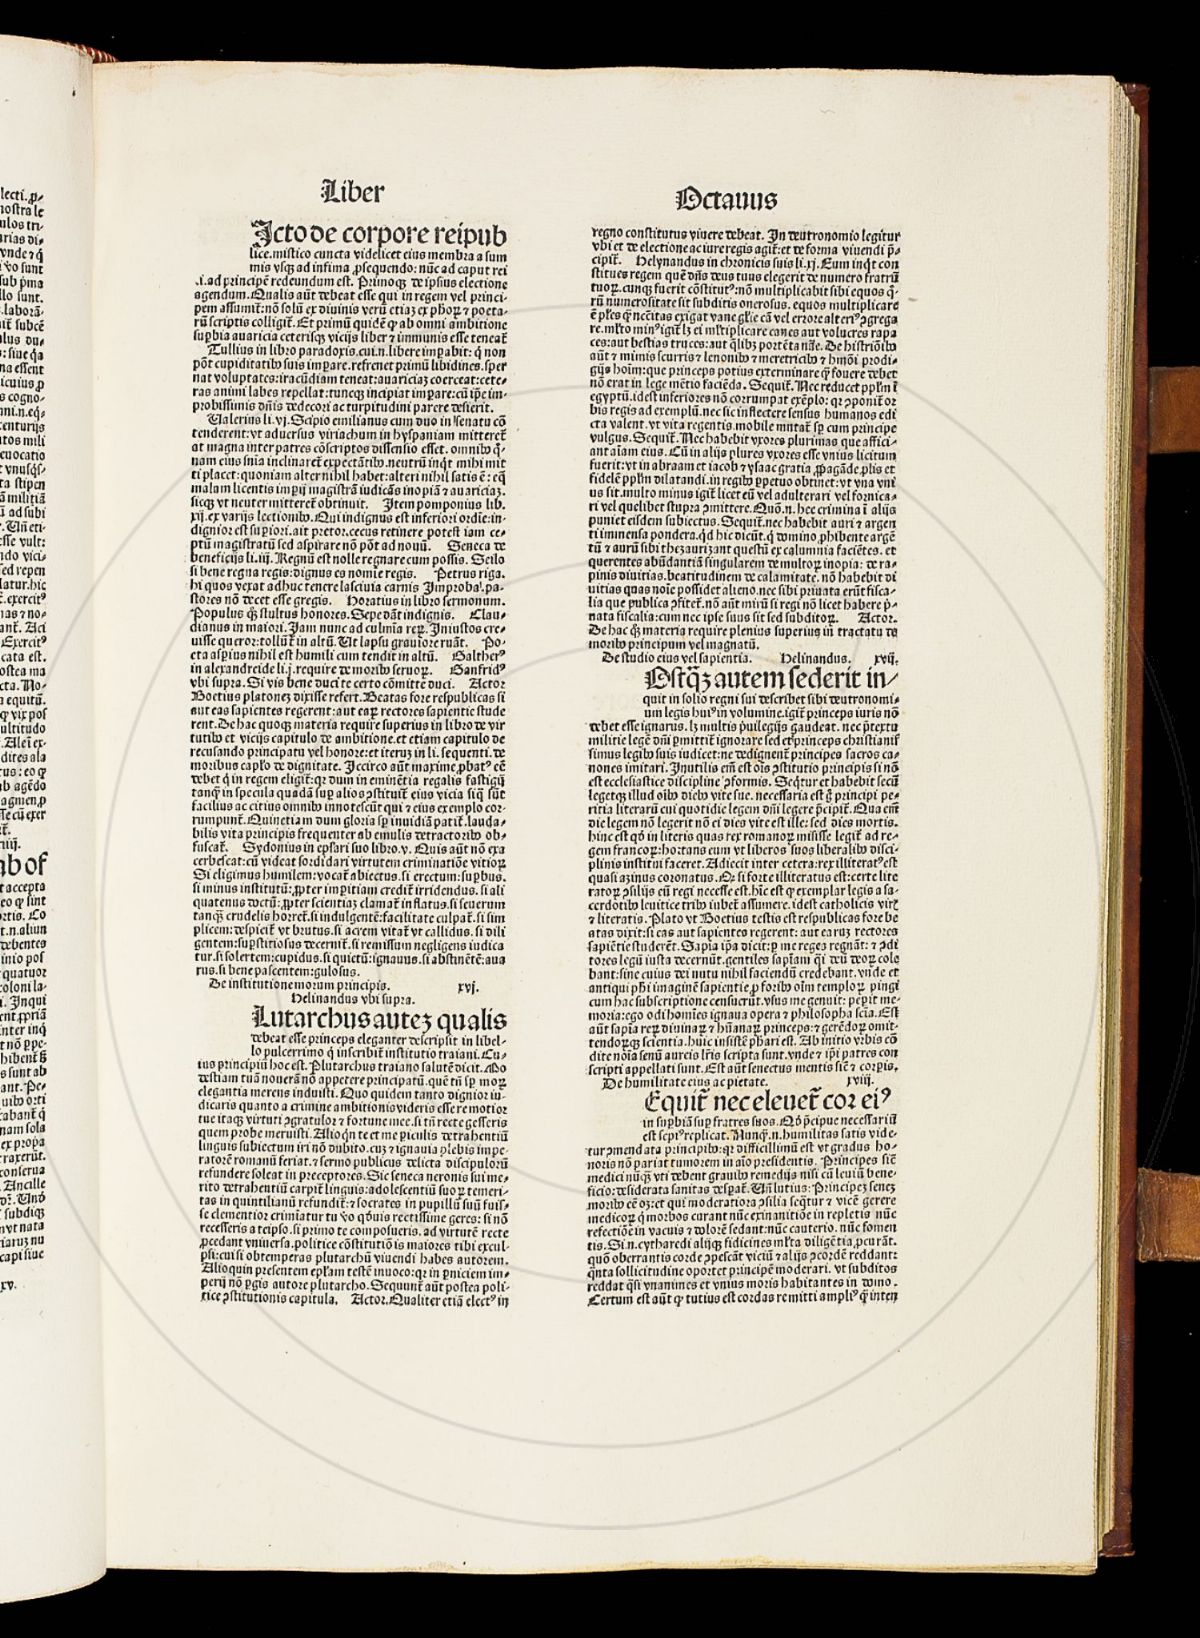 Liber
Octauus
Icto de corpore reipub
lice.mistico cuncta videlicet eius membra a sum
mis vsq̃ ad infima ꝓsequendo:nũc ad caput rei
.i.ad principẽ redeundum est. Primoqꝫ de ipsius electione
agendum.Qualis aũt debeat esse qui in regem vel princi-
pem assumit̃:nõ solũ ex diuinis verũ etiaꝫ ex phoꝝ ⁊ poeta-
rũ scriptis colligit̃. Et primũ quidẽ ꝙ ab omni ambitione
supbia auaricia ceterisqꝫ vicijs liber ⁊ immunis esse teneat̃
Tullius in libro paradoxis.cui.n.libere impabit: q̃ non
põt cupiditatibꝰ suis impare.refrenet primũ libidines.sper
nat voluptates:iracũdiam teneat:auariciaꝫ coerceat:cete-
ras animi labes repellat:tuncqꝫ incipiat impare:cũ ip̃e im-
probissimis dñis dedecori ac turpitudini parere desierit.
Ualerius li.vj.Scipio emilianus cum duo in senatu cõ
tenderent:vt aduersus viriachum in hyspaniam mitteret̃
at magna inter patres cõscriptos dissensio esset. omnibꝰ q̃-
nam eius snĩa inclinaret̃ expectãtibꝰ.neutrũ inq̃t mihi mit
ti placet:quoniam alter nihil habet:alteri nihil satis ẽ: eq̃
malam licentis impij magistrã iudicãs inopiã ⁊ auariciaꝫ.
sicqꝫ vt neuter mitteret̃ obtinuit. Item pomponius lib.
xij.ex varijs lectionibꝰ.Qui indignus est inferiori ordĩe:in-
dignior est supiori.ait pretor.cecus retinere potest iam ce-
ptũ magistratũ sed aspirare nõ põt ad nouũ. Seneca de
beneficijs li.iij. Regnũ est nolle regnare cum possis. Seilo
si bene regna regis:dignus es nomĩe regis. Petrus riga.
hi quos vexat adhuc tenere lasciuia carnis Improbaꝰ.pa-
stores nõ decet esse gregis. Horatius in libro sermonum.
Populus q̃ stultus honores.Sepe dãt indignis. Clau-
dianus in maiori.Jam nunc ad culmĩa reꝝ.Iniustos cre-
uisse queror:tollũt̃ in altũ.Ut lapsu grauiore ruãt. Po-
eta aspius nihil est humili cum tendit in altũ. Galtherꝰ
in alexandreide li.j.require de moribꝰ seruoꝝ. Ganfridꝰ
vbi supra.Si vis bene duci te certo cõmitte duci. Actor
Boetius platoneꝫ dixisse refert.Beatas fore respublicas si
aut eas sapientes regerent:aut eaꝝ rectores sapientie stude
rent.De hac quoqꝫ materia require superius in libro de vir
tutibꝰ et vicijs capitulo de ambitione.et etiam capitulo de
recusando principatu vel honore:et iteruꝫ in li.sequenti.de
moribus caplo de dignitate. Iccirco aũt maxime ꝓbatꝰ eẽ
debet q̃ in regem eligit̃:qꝛ dum in eminẽtia regalis fastigij
tanq̃ in specula quadã sup alios ꝯstituit̃ eius vicia siq̃ sũt
facilius ac citius omnibꝰ innotescũt qui ⁊ eius exemplo cor-
rumpunt̃.Quinetiam dum gloria sp inuidiã patit̃.lauda-
bilis vita principis frequenter ab emulis detractoribꝰ ob-
fuscat̃. Sydonius in epl̃ari suo libro.v. Quis aũt nõ exa
cerbescat:cũ videat sordidari virtutem criminatiõe vitioꝝ
Si eligimus humilem:vocat̃ abiectus.si erectum:supbus.
si minus institutũ:ꝓpter impitiam credit̃ irridendus.si ali
quatenus doctũ:ꝓpter scientiaꝫ clamat̃ inflatus.si seuerum
tanq̃ꝫ crudelis horret̃.si indulgentẽ:facilitate culpat̃.si sim
plicem:despicit̃ vt brutus.si acrem vitat̃ vt callidus.si dili
gentem:supstitiosus decernit̃.si remissum negligens iudica
tur.si solertem:cupidus.si quietũ:ignauus.si abstinẽtẽ:aua
rus.si bene pascentem:gulosus.
De institutione morum principis. xvj.
Helinandus vbi supra.
Lutarchus auteꝫ qualis
debeat esse princeps eleganter descripsit in libel-
lo pulcerrimo q̃ inscribit̃ institutio traiani.Cu-
ius principiũ hoc est.Plutarchus traiano salutẽ dicit.Mo
destiam tuã noueram nõ appetere principatũ.quẽ tñ sp moꝝ
elegantia merens induisti.Quo quidem tanto dignior iu-
dicaris quanto a crimine ambitionis videris esse remotior
tue itaqꝫ virtuti ꝯgratulor ⁊ fortune mee.si tñ recte gesseris
quem probe meruisti.Alioq̃n te et me piculis detrahentiũ
linguis subiectum iri nõ dubito.cuꝫ ⁊ ignauia plebis impe-
ratorẽ romanũ feriat.⁊ sermo publicus delicta discipulorũ
refundere soleat in preceptores.Sic seneca neronis sui me-
rito detrahentiũ carpit̃ linguis:adolescentiũ suoꝝ temeri-
tas in quintilianũ refundit̃:⁊ socrates in pupillũ suũ fuis-
se clementior crimĩatur tu vo q̃duis rectissime geres:si nõ
recesseris a teipso.si primo te composueris.ad virtutẽ recte
ꝓcedant vniuersa.politice cõstitutiõis maiores tibi excul-
psi:cui si obtemperas plutarchũ viuendi habes autorem.
Alioquin presentem epl̃am testẽ inuoco:qꝛ in pniciem im-
perij nõ pgis autore plutarcho.Sequunt̃ aũt postea poli-
tice ꝯstitutionis capitula. Actor.Qualiter etiã electꝰ in
regno constitutus viuere debeat. In deutronomio legitur
vbi et de electione ac iure regis agit̃:et de forma viuendi p̃-
cipit̃. Helynandus in chronicis suis li.xj.Eum inq̃t con
stitues regem quẽ dñs deus tuus elegerit de numero fratrũ
tuoꝝ.cunqꝫ fuerit cõstitutꝰ:nõ multiplicabit sibi equos q̃-
rũ numerositate sit subditis onerosus.equos multiplicare
ẽ ples q̃ necitas exigat vane glie cã vel errore alteriꝰ ꝯgrega
re.mlto minꝰ igit̃ lꝫ ei mltiplicare canes aut volucres rapa
ces:aut bestias truces:aut q̃libꝫ portẽta nãe. De histriõibꝰ
aũt ⁊ mimis scurris ⁊ lenonibꝰ ⁊ meretricibꝰ ⁊ hmõi prodi-
gijs hoim:que princeps potius exterminare q̃ fouere debet
nõ erat in lege mẽtio faciẽda. Sequit̃.Nec reducet pplm ĩ
egyptũ.idest inferiores nõ corrumpat exẽplo: qꝛ ꝯponit̃ or
bis regis ad exemplũ.nec sic inflectere sensus humanos edi
cta valent.vt vita regentis.mobile mutat̃ sp cum principe
vulgus.Sequit̃.Nec habebit vxores plurimas que affici-
ant aĩam eius. Cũ in alijs plures vxores esse vnius licitum
fuerit:vt in abraam et iacob ⁊ ysaac gratia ꝓpagãde plis et
fidelẽ pplm dilatandi.in regibꝰ ppetuo obtinet:vt vna vni
us sit.multo minus igit̃ licet eũ vel adulterari vel fornica-
ri vel quelibet stupra ꝯmittere.Quõ.n.hec crimina ĩ alijs
puniet eisdem subiectus.Sequit̃.nec habebit auri ⁊ argen
ti immensa pondera.q̃d hic dicit̃.q̃ domino ꝓhibente argẽ
tũ ⁊ aurũ sibi thezaurizant questũ ex calumnia faciẽtes. et
querentes abũdantiã singularem de multoꝝ inopia: de ra-
pinis diuitias.beatitudinem de calamitate.nõ habebit di
uitias quas noĩe possidet alieno.nec sibi priuata erũt fisca-
lia que publica ꝯfitet̃.nõ aũt mirũ si regi nõ licet habere p̃-
nata fiscalia:cum nec ipse suus sit sed subditoꝝ. Actor.
De hac q̃ꝫ materia require plenius superius in tractatu de
moribꝰ principum vel magnatũ.
De studio eius vel sapientia. Helinandus. xvij.
Ostq̃ꝫ autem sederit in-
quit in solio regni sui describet sibi deutronomi-
um legis huiꝰ in volumine.igit̃ princeps iuris nõ
debet esse ignarus.lꝫ multis p̃uilegijs gaudeat. nec p̃textu
militie legẽ dñi pmittit̃ ignorare sed et princeps christianis
simus legibꝰ suis iudicet:ne dedignent̃ principes sacros ca-
nones imitari. Inutilis em̃ est oĩs ꝯstitutio principis si nõ
est ecclesiastice discipline ꝯformis. Seq̃tur et habebit secũ
legeqꝫ illud oĩbꝰ diebꝰ vite sue. necessaria est g̃ principi pe-
ritia literarũ cui quotidie legem dñi legere p̃cipit̃. Qua em̃
die legem nõ legerit nõ ei dies vite est ille: sed dies mortis.
hinc est qõ in literis quas rex romanoꝝ misisse legit̃ ad re-
gem francoꝝ:hortans eum vt liberos suos liberalibꝰ disci-
plinis institui faceret.Adiecit inter cetera:rex illiteratꝰ est
quasi azinus coronatus. Qꝛ si forte illiteratus est:certe lite
ratoꝝ ꝯsilijs eũ regi necesse est.hĩc est ꝙ exemplar legis a sa-
cerdotibꝰ leuitice tribꝰ iubet̃ assumere.idest catholicis viris
⁊ literatis. Plato vt Boetius testis est respublicas fore be
atas dixit:si eas aut sapientes regerent: aut earuꝫ rectores
sapiẽtie studerẽt. Sapĩa ip̃a dicit:p me reges regnãt: ⁊ ꝯdi
tores legũ iusta decernũt.gentiles sapĩam q̃i deũ deoꝝ cole
bant:sine cuius dei nutu nihil faciendũ credebant.vnde et
antiqui phĩ imaginẽ sapientie p foribꝰ oĩm temploꝝ pingi
cum hac subscriptione censuerũt.vsus me genuit: pepit me-
moria:ego odi homĩes ignaua opera ⁊ philosopha scĩa.Est
aũt sapĩa reꝝ diuinaꝝ ⁊ hũanaꝝ princeps:⁊ gerẽdoꝝ omit-
tendoꝝqꝫ scientia.huic insistẽ phari est. Ab initio vrbis cõ
dite noĩa senũ aureis lrĩs scripta sunt.vnde ⁊ ip̃i patres con
scripti appellati sunt. Est aũt senectus mentis siẽ ⁊ corpis.
De humilitate eius ac pietate. xviij.
Equit̃ nec eleuet̃ cor eiꝰ
in supbiã sup fratres suos. Qõ p̃cipue necessariũ
est sepiꝰ replicat. Nunq̃.n.humilitas satis vide-
tur ꝯmendata principibꝰ:qꝛ difficillimũ est vt gradus ho-
noris nõ pariat tumorem in aĩo presidentis. Principes siẽ
medici nũq̃ vti debent grauibꝰ remedijs nisi cũ leuiũ bene-
ficio:desiderata sanitas despat̃. Uñ lutius: Principeꝫ seneꝫ
moribꝰ eẽ oꝫ:et qui moderatiora ꝯsilia seq̃tur ⁊ vicẽ gerere
medicoꝝ q̃ morbos curant nũc exinanitiõe in repletis nũc
refectiõe in vacuis ⁊ dolorẽ sedant:nũc cauterio. nũc fomen
tis. Si.n.cytharedi alijqꝫ fidicines mlta diligẽtia.pcurãt.
quõ oberrantis corde ꝯpescãt viciũ ⁊ alijs ꝯcordẽ reddant:
q̃nta sollicitudine oportet principẽ moderari. vt subditos
reddat q̃si vnanimes et vnius moris habitantes in domo.
Certum est aũt ꝙ tutius est cordas remitti ampliꝰ q̃ inten